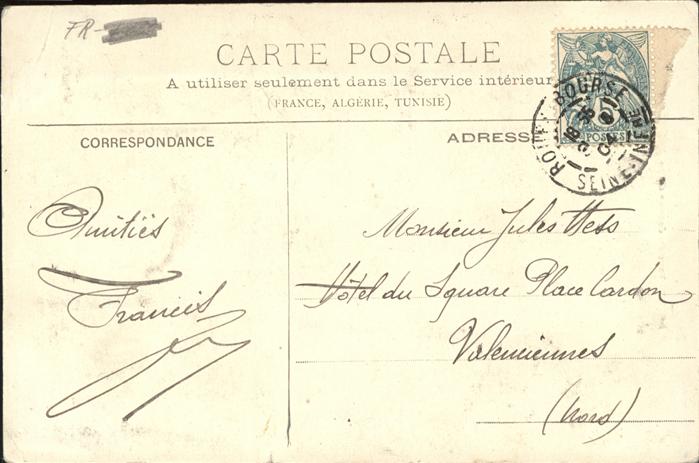 FR-
CARTE POSTALE
A utiliser seulement dans le Service intérieur
(FRANCE, ALGÉRIE, TUNISIE)
CORRESPONDANCE
ADRESSE
ROUEN BOURSE
SEINE-INFRE
POSTES
Amitiés
Francis
Monsieur Jules Hess
Hôtel du Square Place Cardon
Valenciennes
(Nord)